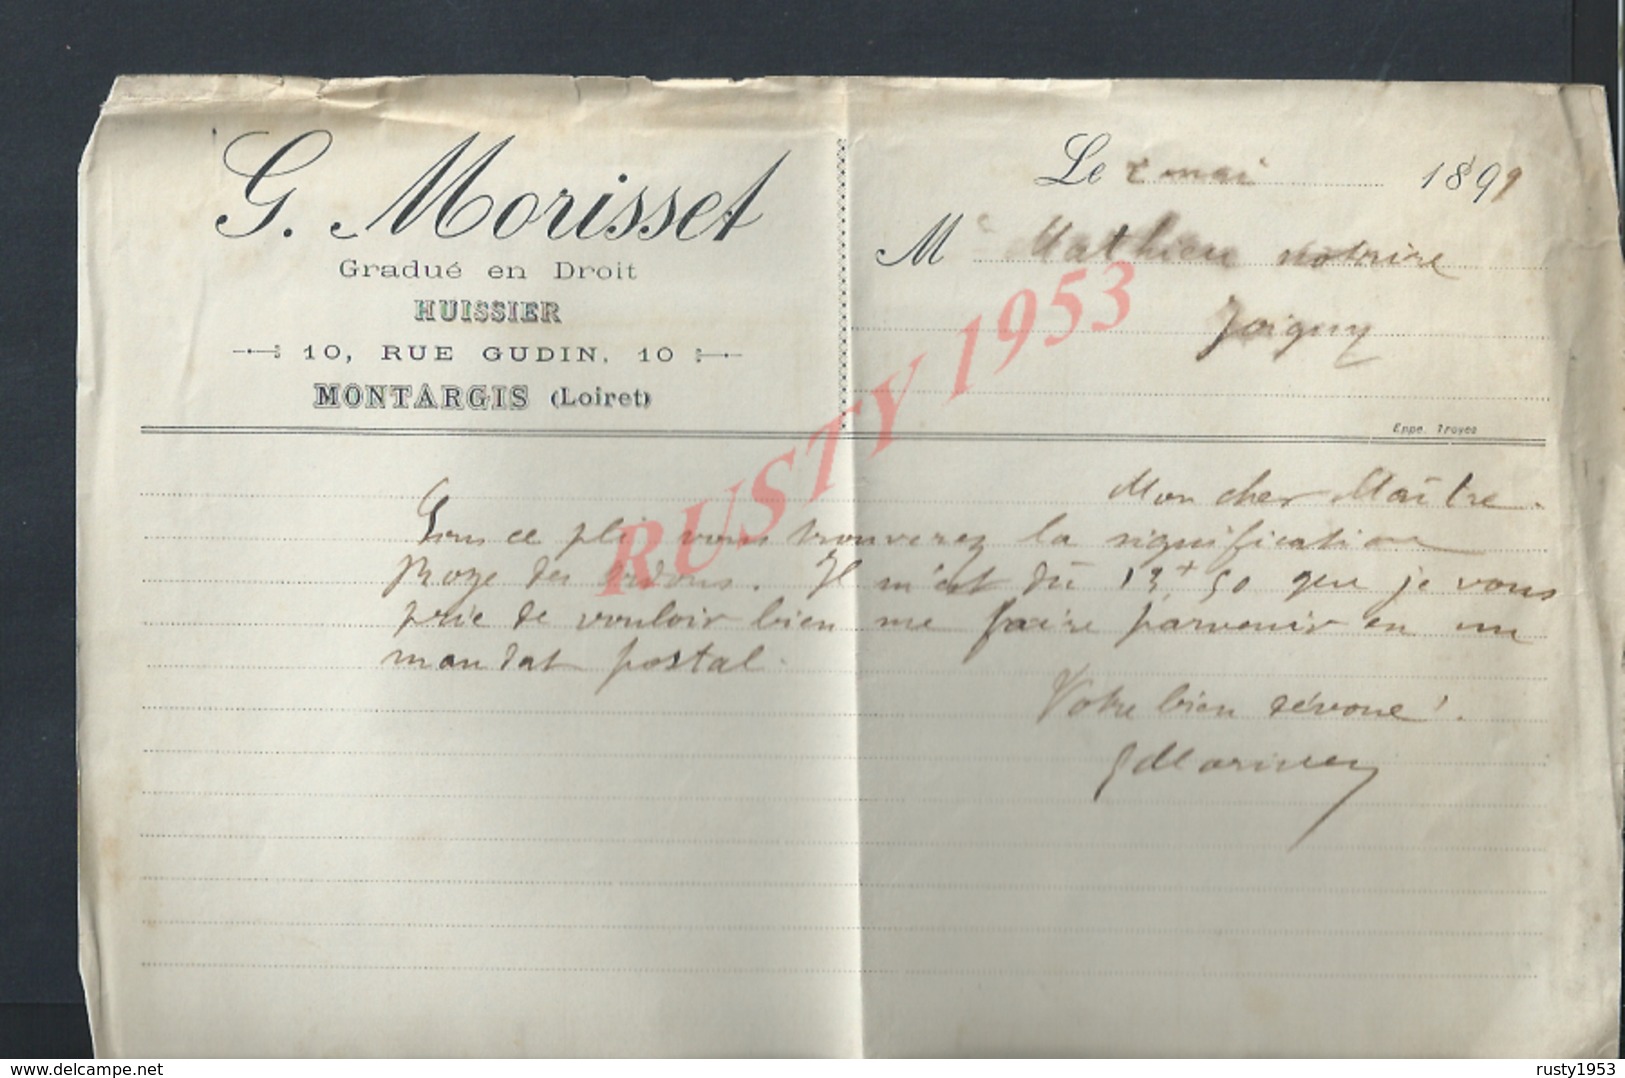 G. Morisset
Gradué en Droit
HUISSIER
10, RUE GUDIN, 10
MONTARGIS (Loiret)
Le 2 mai 1899
Me Mathieu notaire
Joigny
Eppe. Troyes
RUSTY 1953
Mon cher Maître.
Sous ce pli vous trouverez la signification
Roze des . Il m'est dû 13f 50 que je vous
prie de vouloir bien me faire parvenir en un
mandat postal.
Votre bien dévoué.
GMorisset
delcampe.net
rusty1953